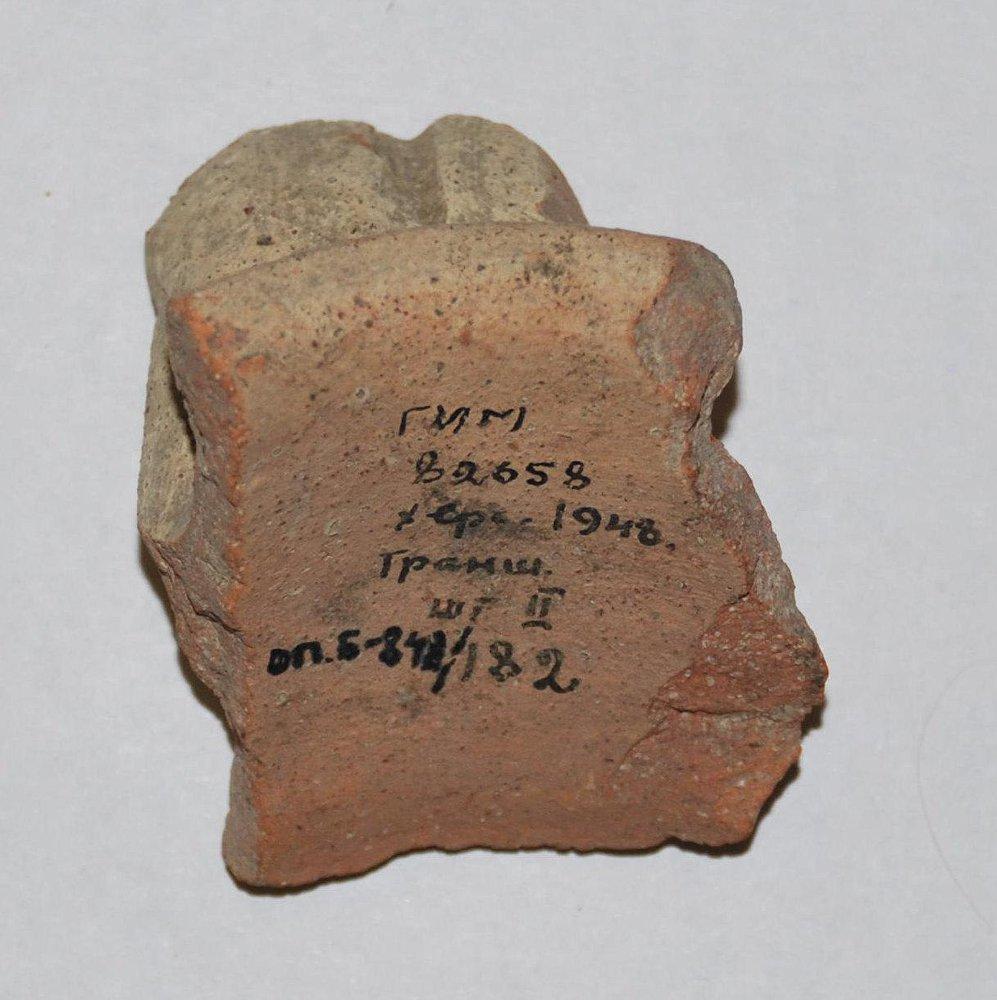 ГИМ
82658
херс. 1948.
Транш.
шг II
оп. Б-842/182